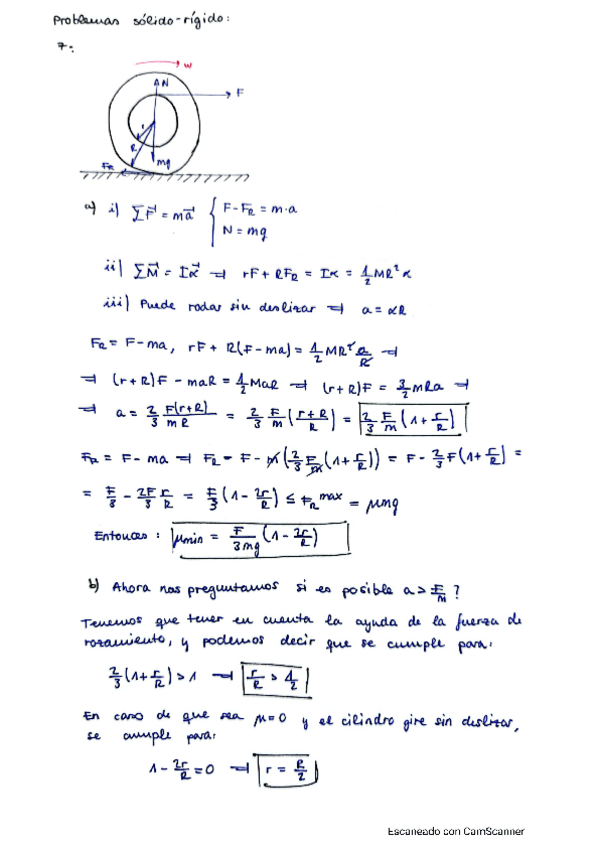 Problemas sólido-rígido:
7:
ω
N
F
r
R
mg
FR
a) i) ΣF⃗ = ma⃗ { F-FR = m·a
N = mg
ii) ΣM⃗ = Iα⃗ ⇒ rF + RFR = Iα = 1/2 MR²α
iii) Puede rodar sin deslizar ⇒ a = αR
FR = F-ma, rF + R(F-ma) = 1/2 MR² a/R ⇒
⇒ (r+R)F - maR = 1/2 MaR ⇒ (r+R)F = 3/2 mRa ⇒
⇒ a = 2/3 F(r+R)/mR = 2/3 F/m (r+R/R) = 2/3 F/m (1+r/R)
FR = F-ma ⇒ FR = F-m(2/3 F/m (1+r/R)) = F-2/3 F(1+r/R) =
= F/3 - 2F/3 r/R = F/3 (1-2r/R) ≤ FR^max = μmg
Entonces: μmin = F/3mg (1-2r/R)
b) Ahora nos preguntamos si es posible a > F/m ?
Tenemos que tener en cuenta la ayuda de la fuerza de
rozamiento, y podemos decir que se cumple para:
2/3 (1+r/R) > 1 ⇒ r/R > 1/2
En caso de que sea μ=0 y el cilindro gire sin deslizar,
se cumple para:
1-2r/R = 0 ⇒ r = R/2
Escaneado con CamScanner